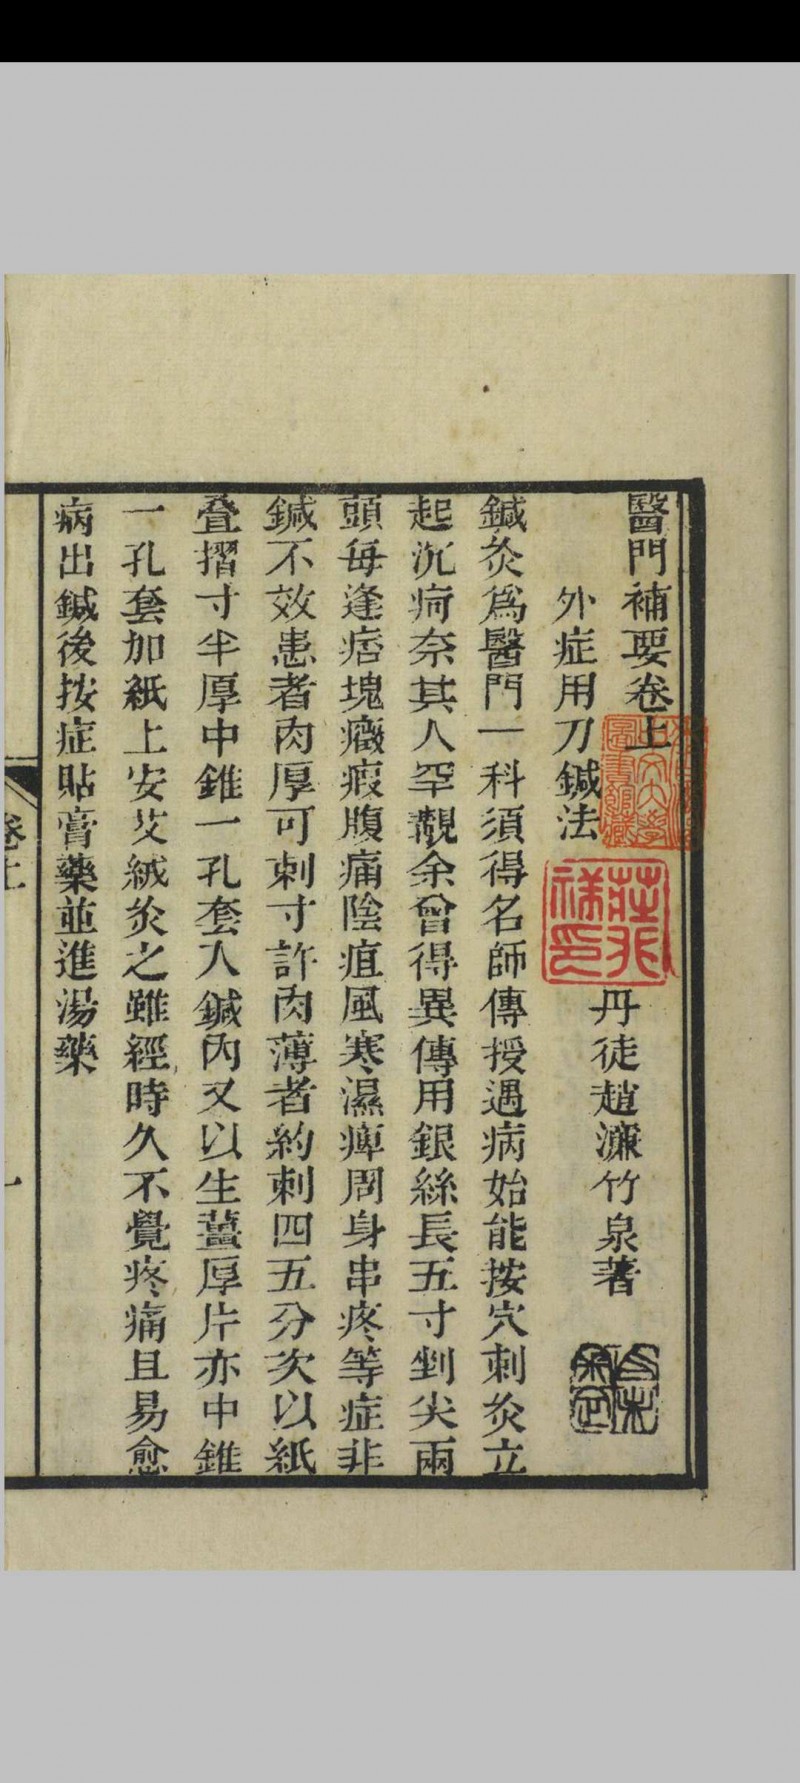 醫門補要卷上
丹徒趙濂竹泉著
外症用刀鍼法
鍼灸爲醫門一科須得名師傳授遇病始能按穴刺灸立
起沉疴奈其人罕覯余曾得異傳用銀絲長五寸剉尖兩
頭每逢痞塊癥瘕腹痛陰疽風寒濕痺周身串疼等症非
鍼不效患者肉厚可刺寸許肉薄者約刺四五分次以紙
叠摺寸半厚中錐一孔套入鍼內又以生薑厚片亦中錐
一孔套加紙上安艾絨灸之雖經時久不覺疼痛且易愈
病出鍼後按症貼膏藥並進湯藥
卷上
一